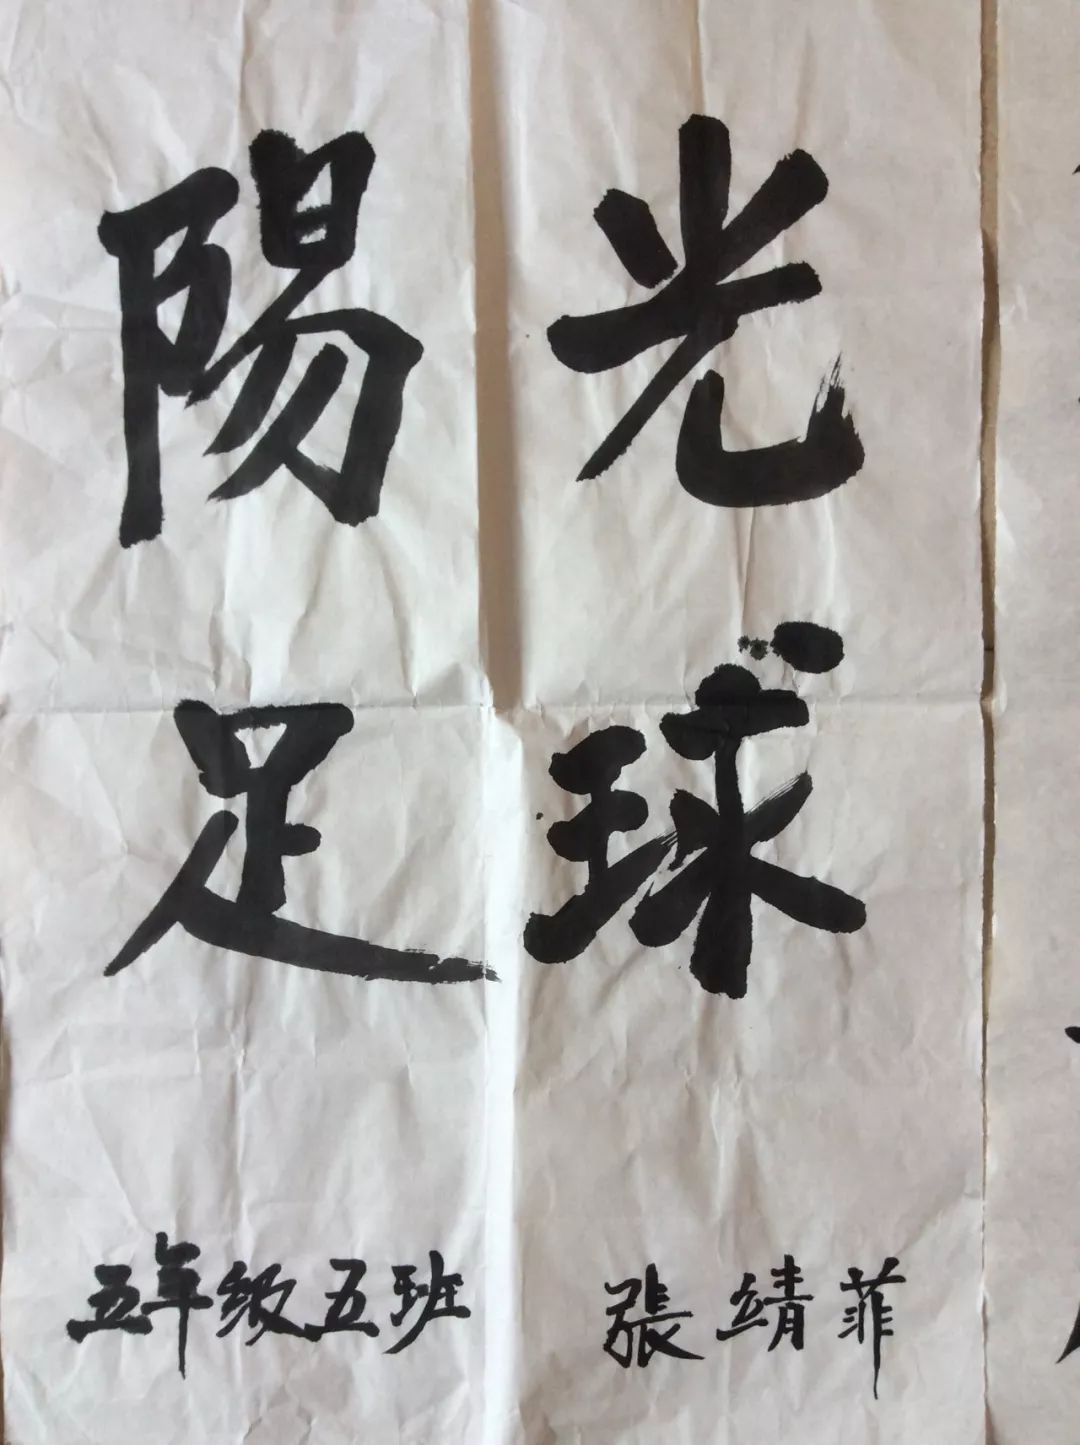 陽光
足球
五年级五班 張靖菲